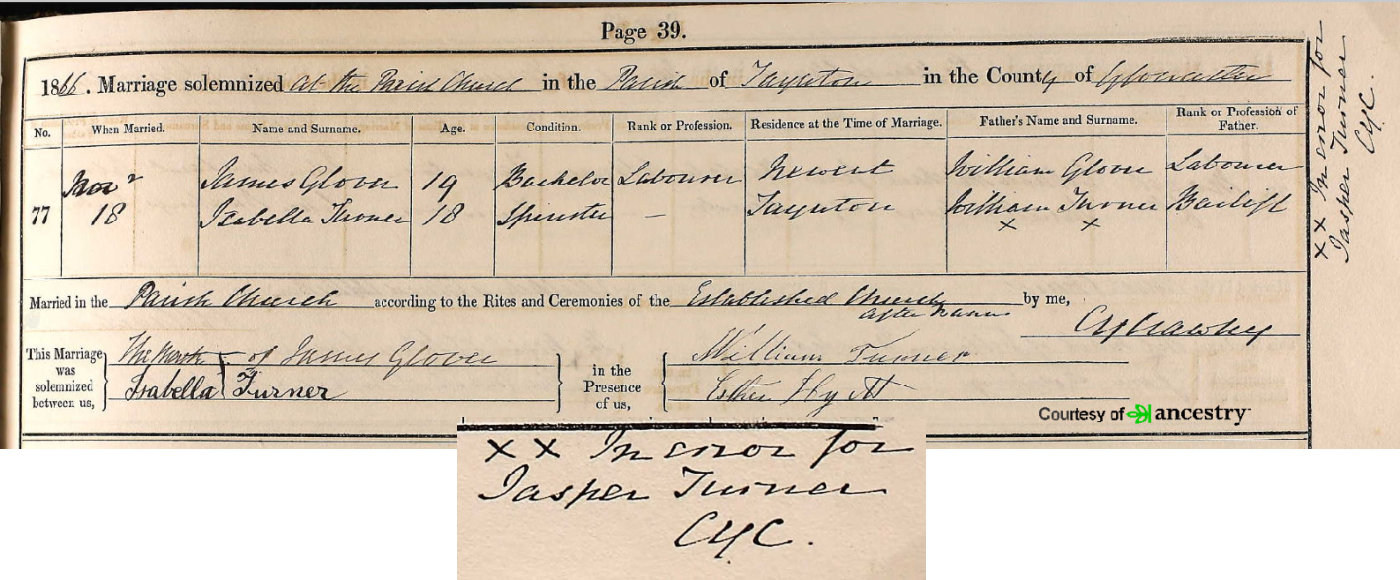 Page 39.
1866. Marriage solemnized at the Parish Church in the Parish of Taynton in the County of Gloucester
No. When Married. Name and Surname. Age. Condition. Rank or Profession. Residence at the Time of Marriage. Father's Name and Surname. Rank or Profession of Father.
Novr James Glover 19 Bachelor Labourer Newent William Glover Labourer
77 18 Isabella Turner 18 Spinster – Taynton William Turner Bailiff
x x
Married in the Parish Church according to the Rites and Ceremonies of the Established Church by me,
after Banns
This Marriage was solemnized between us, The Mark of James Glover
Isabella Turner
in the Presence of us, William Turner
Esther Hyett
Courtesy of ancestry
x x In error for
Jasper Turner
CYC.
x x In error for
Jasper Turner
CYC.